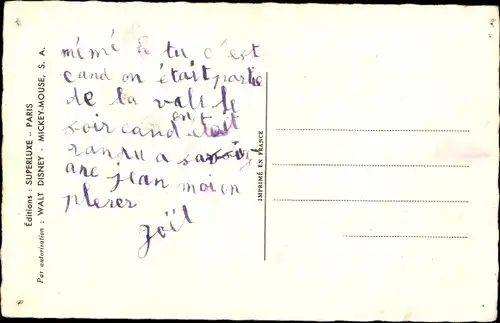 mémé si tu c'est
cand on était partie
de la vall le
soir cand ent était
randu a savoiz
anc jean moi on
plerer
Joël
Éditions : SUPERLUXE - PARIS
Par autorisation : WALT DISNEY - MICKEY-MOUSE, S. A.
IMPRIMÉ EN FRANCE